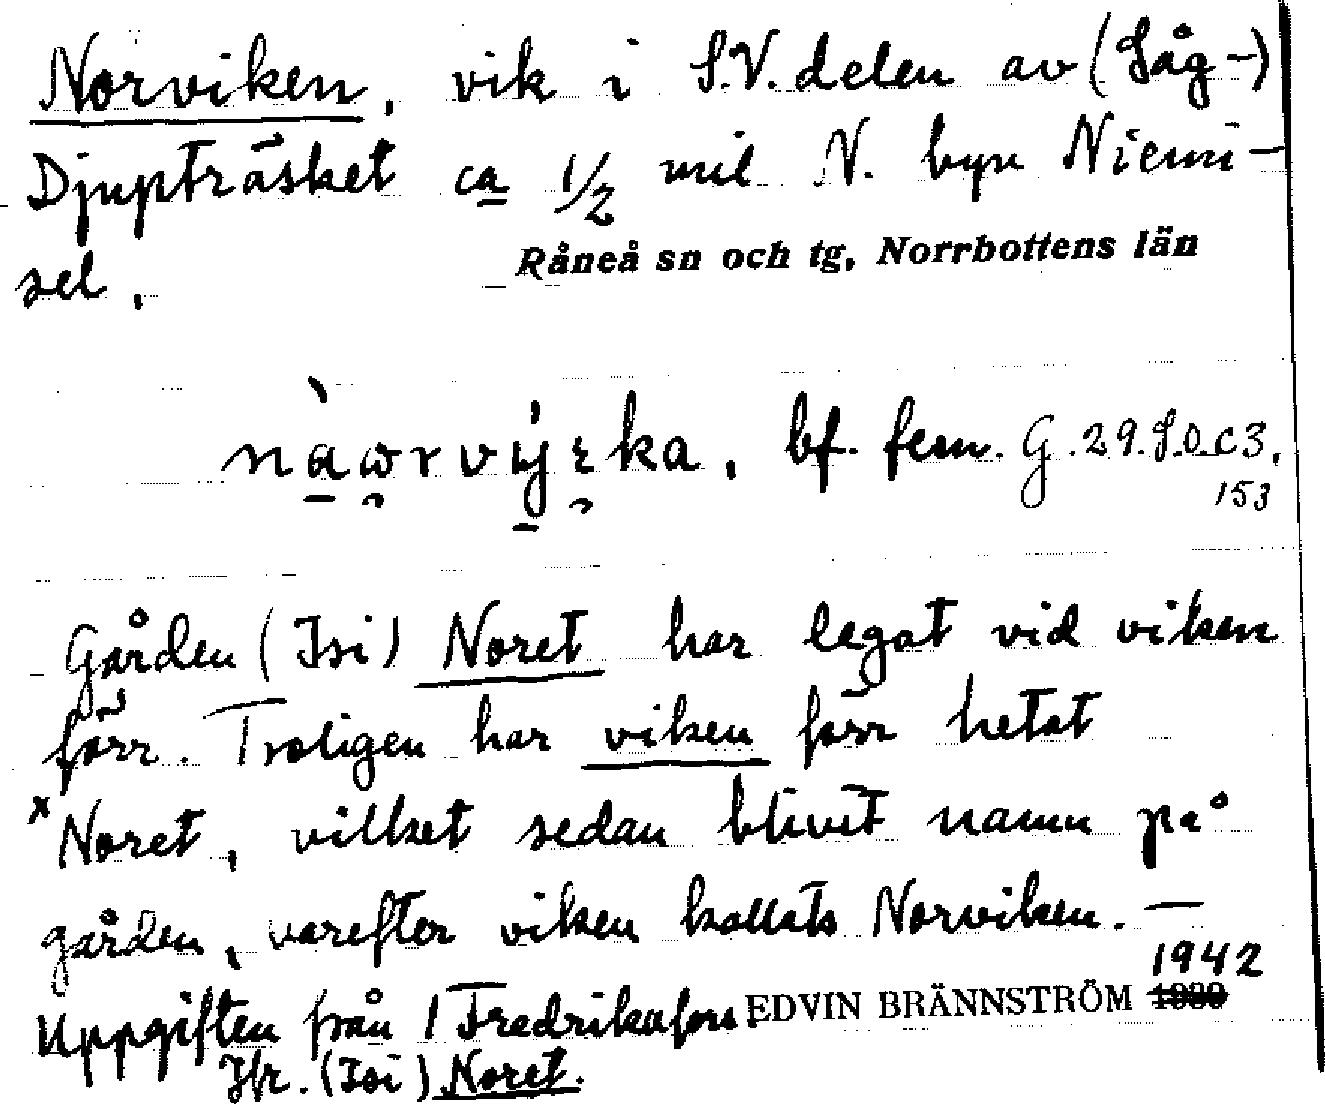 Norviken, vik i S.V. delen av (Såg-)
Djupträsket ca 1/2 mil N. byn Niemi-
sel.
Råneå sn och tg, Norrbottens län
bf. fem. G.29.S.0.C3.
153
Gården (Isi) Noret har legat vid viken
förr. Troligen har viken förr hetat
*Noret, vilket sedan blivit namn på
gården, varefter viken kallats Norviken. —
1942
Uppgiften från EDVIN BRÄNNSTRÖM
(Isi) Noret.